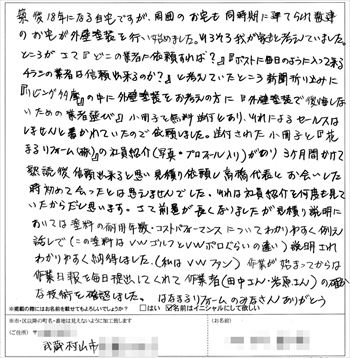 築後18年になる自宅ですが、周囲のお宅も同時期に建てられ数軒
のお宅が外壁塗装を行い始めました。そろそろ我が家もと考えていました。
ところがさて『どこの業者に依頼すれば?』『ポストに毎日のように入って来る
チラシの業者は信頼出来るのか?』と考えていたところ新聞折り込みに
『リビング多摩』の中に外壁塗装をお考えの方に『外壁塗装で後悔しな
いための業者選び』小冊子と無料送付とあり、それによるセールスは
しませんと書かれていたので依頼しました。送付された小冊子と『花
まるリフォーム(株)』の社員紹介(写真・プロフィール入り)があり3ヶ月間かけて
熟読後信頼出来ると思い見積り依頼し高橋代表とお会いした
時初めて会ったとは思えませんでした。それは社員紹介を何度も見て
いたからだと思います。さて前置が長くなりましたが見積り説明に
おいては塗料の耐用年数・コストパフォーマンスについてわかりやすく例え
話しで(この塗料はVWゴルフとVWポロぐらいの違い)説明され
わかりやすく納得しました。(私はVWファン)作業が始まってからは
作業日報を毎日提出してくれて作業者(田中さん・岩原さん)の確か
な技術を確認しました。はなまるリフォームのみなさんありがとう
※掲載の際にはお名前を載せてもよろしいでしょうか?　□はい ☑名前はイニシャルにして欲しい
※市・区以降の町名・番地は見えないように加工致します
〈ご住所〉　〈お名前〉
武蔵村山市